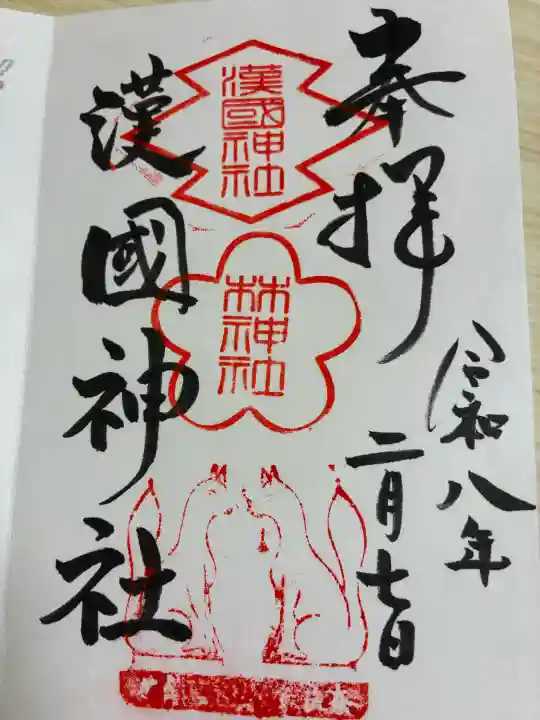 奉拝
令和八年
二月七日
漢國神社
漢國神社
林神社